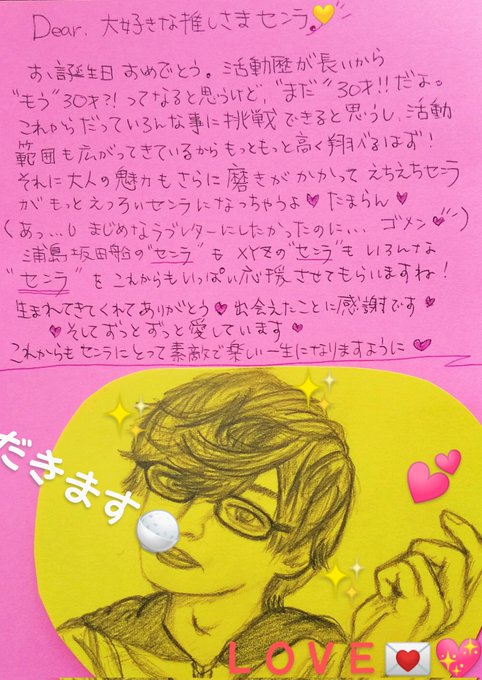 Dear. 大好きな推しさま センラ💛
お誕生日 おめでとう。活動歴が長いから
"もう"30才?! ってなると思うけど、"まだ"30才!! だよ。
これからだっていろんな事に挑戦できると思うし、活動
範囲も広がってきているからもっともっと高く翔べるはず!
それに大人の魅力もさらに磨きがかかって えちえちセンラ
がもっとえっろいセンラになっちゃうよ♥ たまらん♥
(あっ...!! まじめなラブレターにしたかったのに... ゴメン♥)
浦島坂田船の"センラ"も XYZの"センラ"も いろんな
"センラ"を これからもいっぱい応援させてもらいますね!
生まれてきてくれてありがとう♥ 出会えたことに感謝です♥
♥ そしてずっとずっと愛しています♥
これからもセンラにとって素敵で楽しい一生になりますように♥
だきます
LOVE💌💖